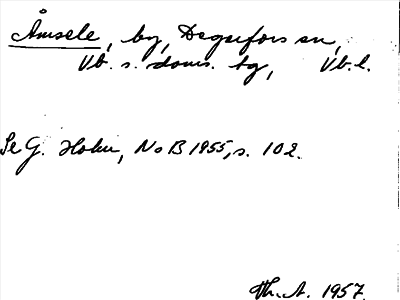 Åmsele, by, Degerfors sn,
Vb. s. doms. tg, Vb. l.
Se G. Holm, NoB 1955, s. 102.
Th. A. 1957.